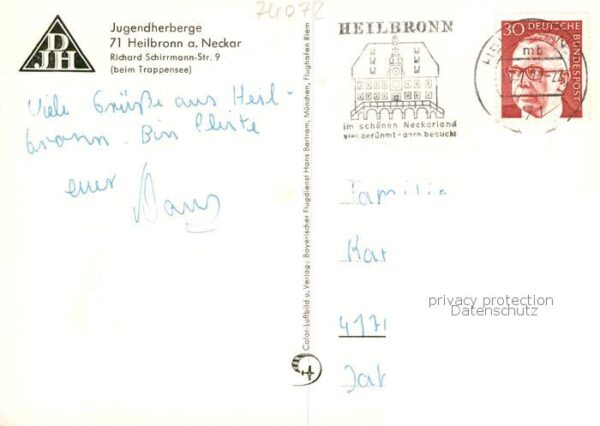 74072
DJH
Jugendherberge
71 Heilbronn a. Neckar
Richard Schirrmann-Str. 9
(beim Trappensee)
Viele Grüße aus Heil-
bronn. Bin Pleite
euer
Color-Luftbild u. Verlag: Bayerischer Flugdienst Hans Bertram, München, Flughafen Riem
HEILBRONN
im schönen Neckarland
viel gerühmt - gern besucht
mt
30 DEUTSCHE
BUNDESPOST
Familie
privacy protection
Datenschutz